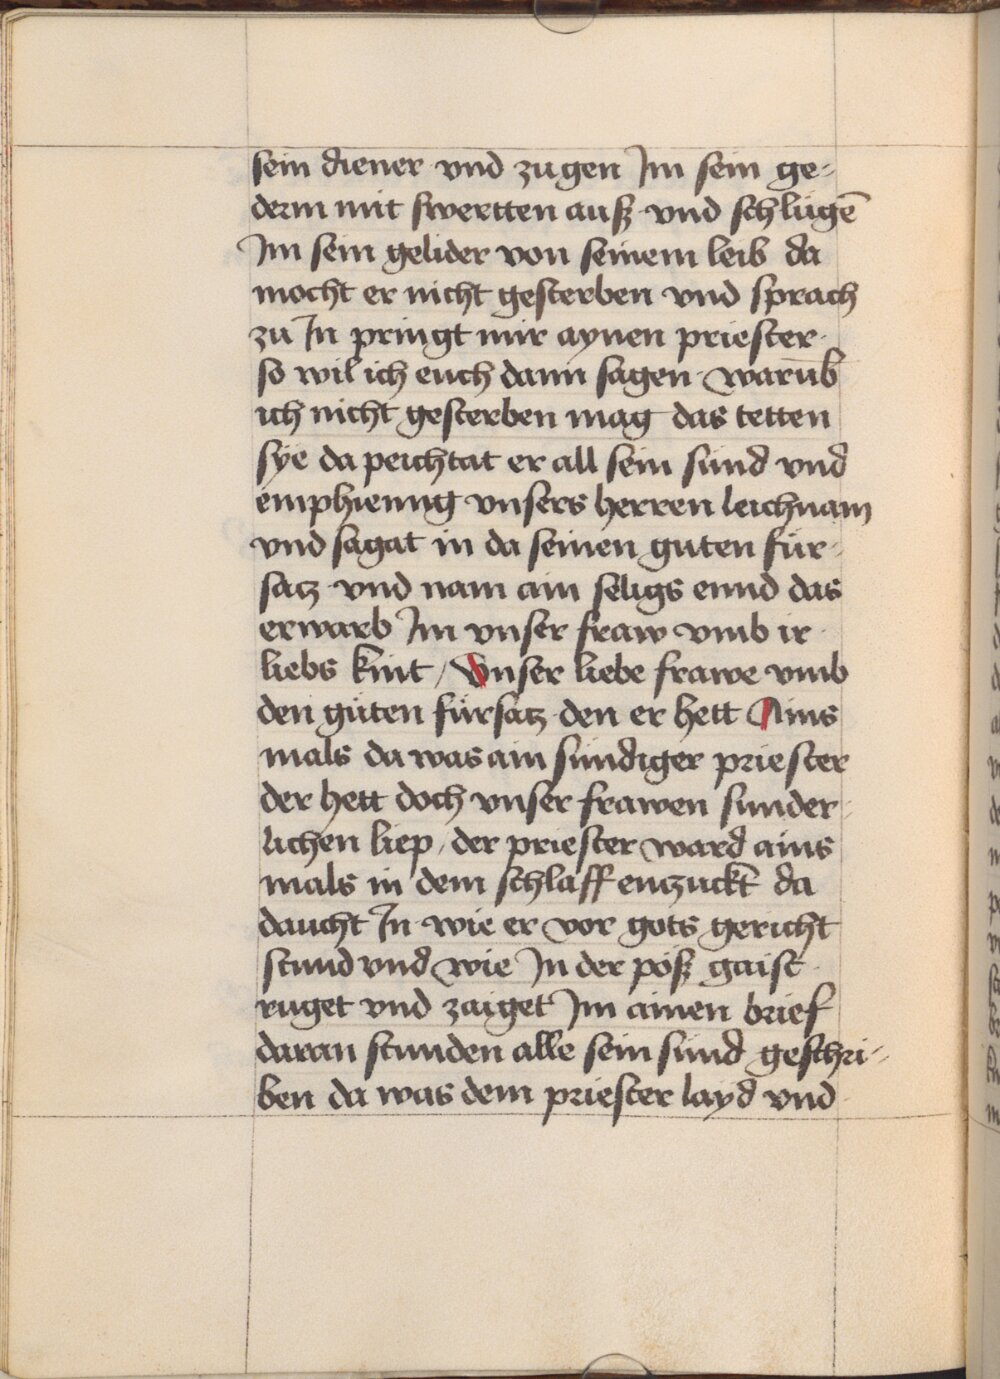 sein diener vnd zugen Im sein ge-
derm mit swertten auß vnd schlůgē
Im sein gelider von seinem leib da
mocht er nicht gesterben vnd sprach
zu In pringt mir aynen priester
so wil ich euch dann sagen warūb
ich nicht gesterben mag das tetten
sye da peichtat er all sein sünd vnd
emphienng vnsers herren leichnam
vnd sagat in da seinen guten für-
satz vnd nam ain seligs ennd das
erwarb Im vnser fraw vmb ir
liebs kint / Vnser liebe frawe vmb
den gůten fürsatz den er hett Ains
mals da was ain sündiger priester
der hett doch vnser frawen sunder-
lichen liep / der priester ward ains
mals in dem schlaff entzuckt da
daucht In wie er vor gots gericht
stund vnd wie In der pöß gaist
ruget vnd zaiget Im ainen brief
daran stunden alle sein sünd geschri-
ben da was dem priester layd vnd